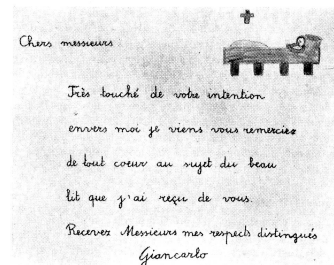 Chers messieurs
Très touché de votre intention
envers moi je viens vous remercier
de tout coeur au sujet du beau
lit que j'ai reçu de vous.
Recevez Messieurs mes respects distingués
Giancarlo